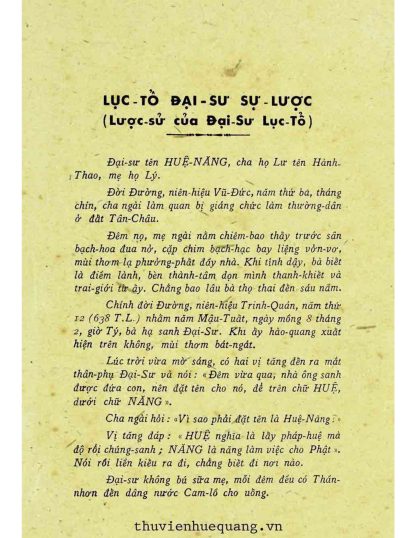 LỤC-TỔ ĐẠI-SƯ SỰ-LƯỢC
(Lược-sử của Đại-Sư Lục-Tổ)
Đại-sư tên HUỆ-NĂNG, cha họ Lư tên Hành-
Thao, mẹ họ Lý.
Đời Đường, niên-hiệu Vũ-Đức, năm thứ ba, tháng
chín, cha ngài làm quan bị giáng chức làm thường-dân
ở đất Tân-Châu.
Đêm nọ, mẹ ngài nằm chiêm-bao thấy trước sân
bạch-hoa đua nở, cặp chim bạch-hạc bay liệng vởn-vơ,
mùi thơm lạ phưởng-phất đầy nhà. Khi tỉnh dậy, bà biết
là điềm lành, bèn thành-tâm dọn mình thanh-khiết và
trai-giới từ ấy. Chẳng bao lâu bà thọ thai đến sáu năm.
Chính đời Đường, niên-hiệu Trinh-Quán, năm thứ
12 (638 T.L.) nhằm năm Mậu-Tuất, ngày mồng 8 tháng
2, giờ Tý, bà hạ sanh Đại-Sư. Khi ấy hào-quang xuất
hiện trên không, mùi thơm bát-ngát.
Lúc trời vừa mờ sáng, có hai vị tăng đến ra mắt
thân-phụ Đại-Sư và nói : «Đêm vừa qua, nhà ông sanh
được đứa con, nên đặt tên cho nó, để trên chữ HUỆ,
dưới chữ NĂNG».
Cha ngài hỏi : «Vì sao phải đặt tên là Huệ-Năng?»
Vị tăng đáp : « HUỆ nghĩa là lấy pháp-huệ mà
độ rỗi chúng-sanh ; NĂNG là năng làm việc cho Phật ».
Nói rồi liền kiếu ra đi, chẳng biết đi nơi nào.
Đại-sư không bú sữa mẹ, mỗi đêm đều có Thần-
nhơn đến dâng nước Cam-lồ cho uống.
thuvienhuequang.vn